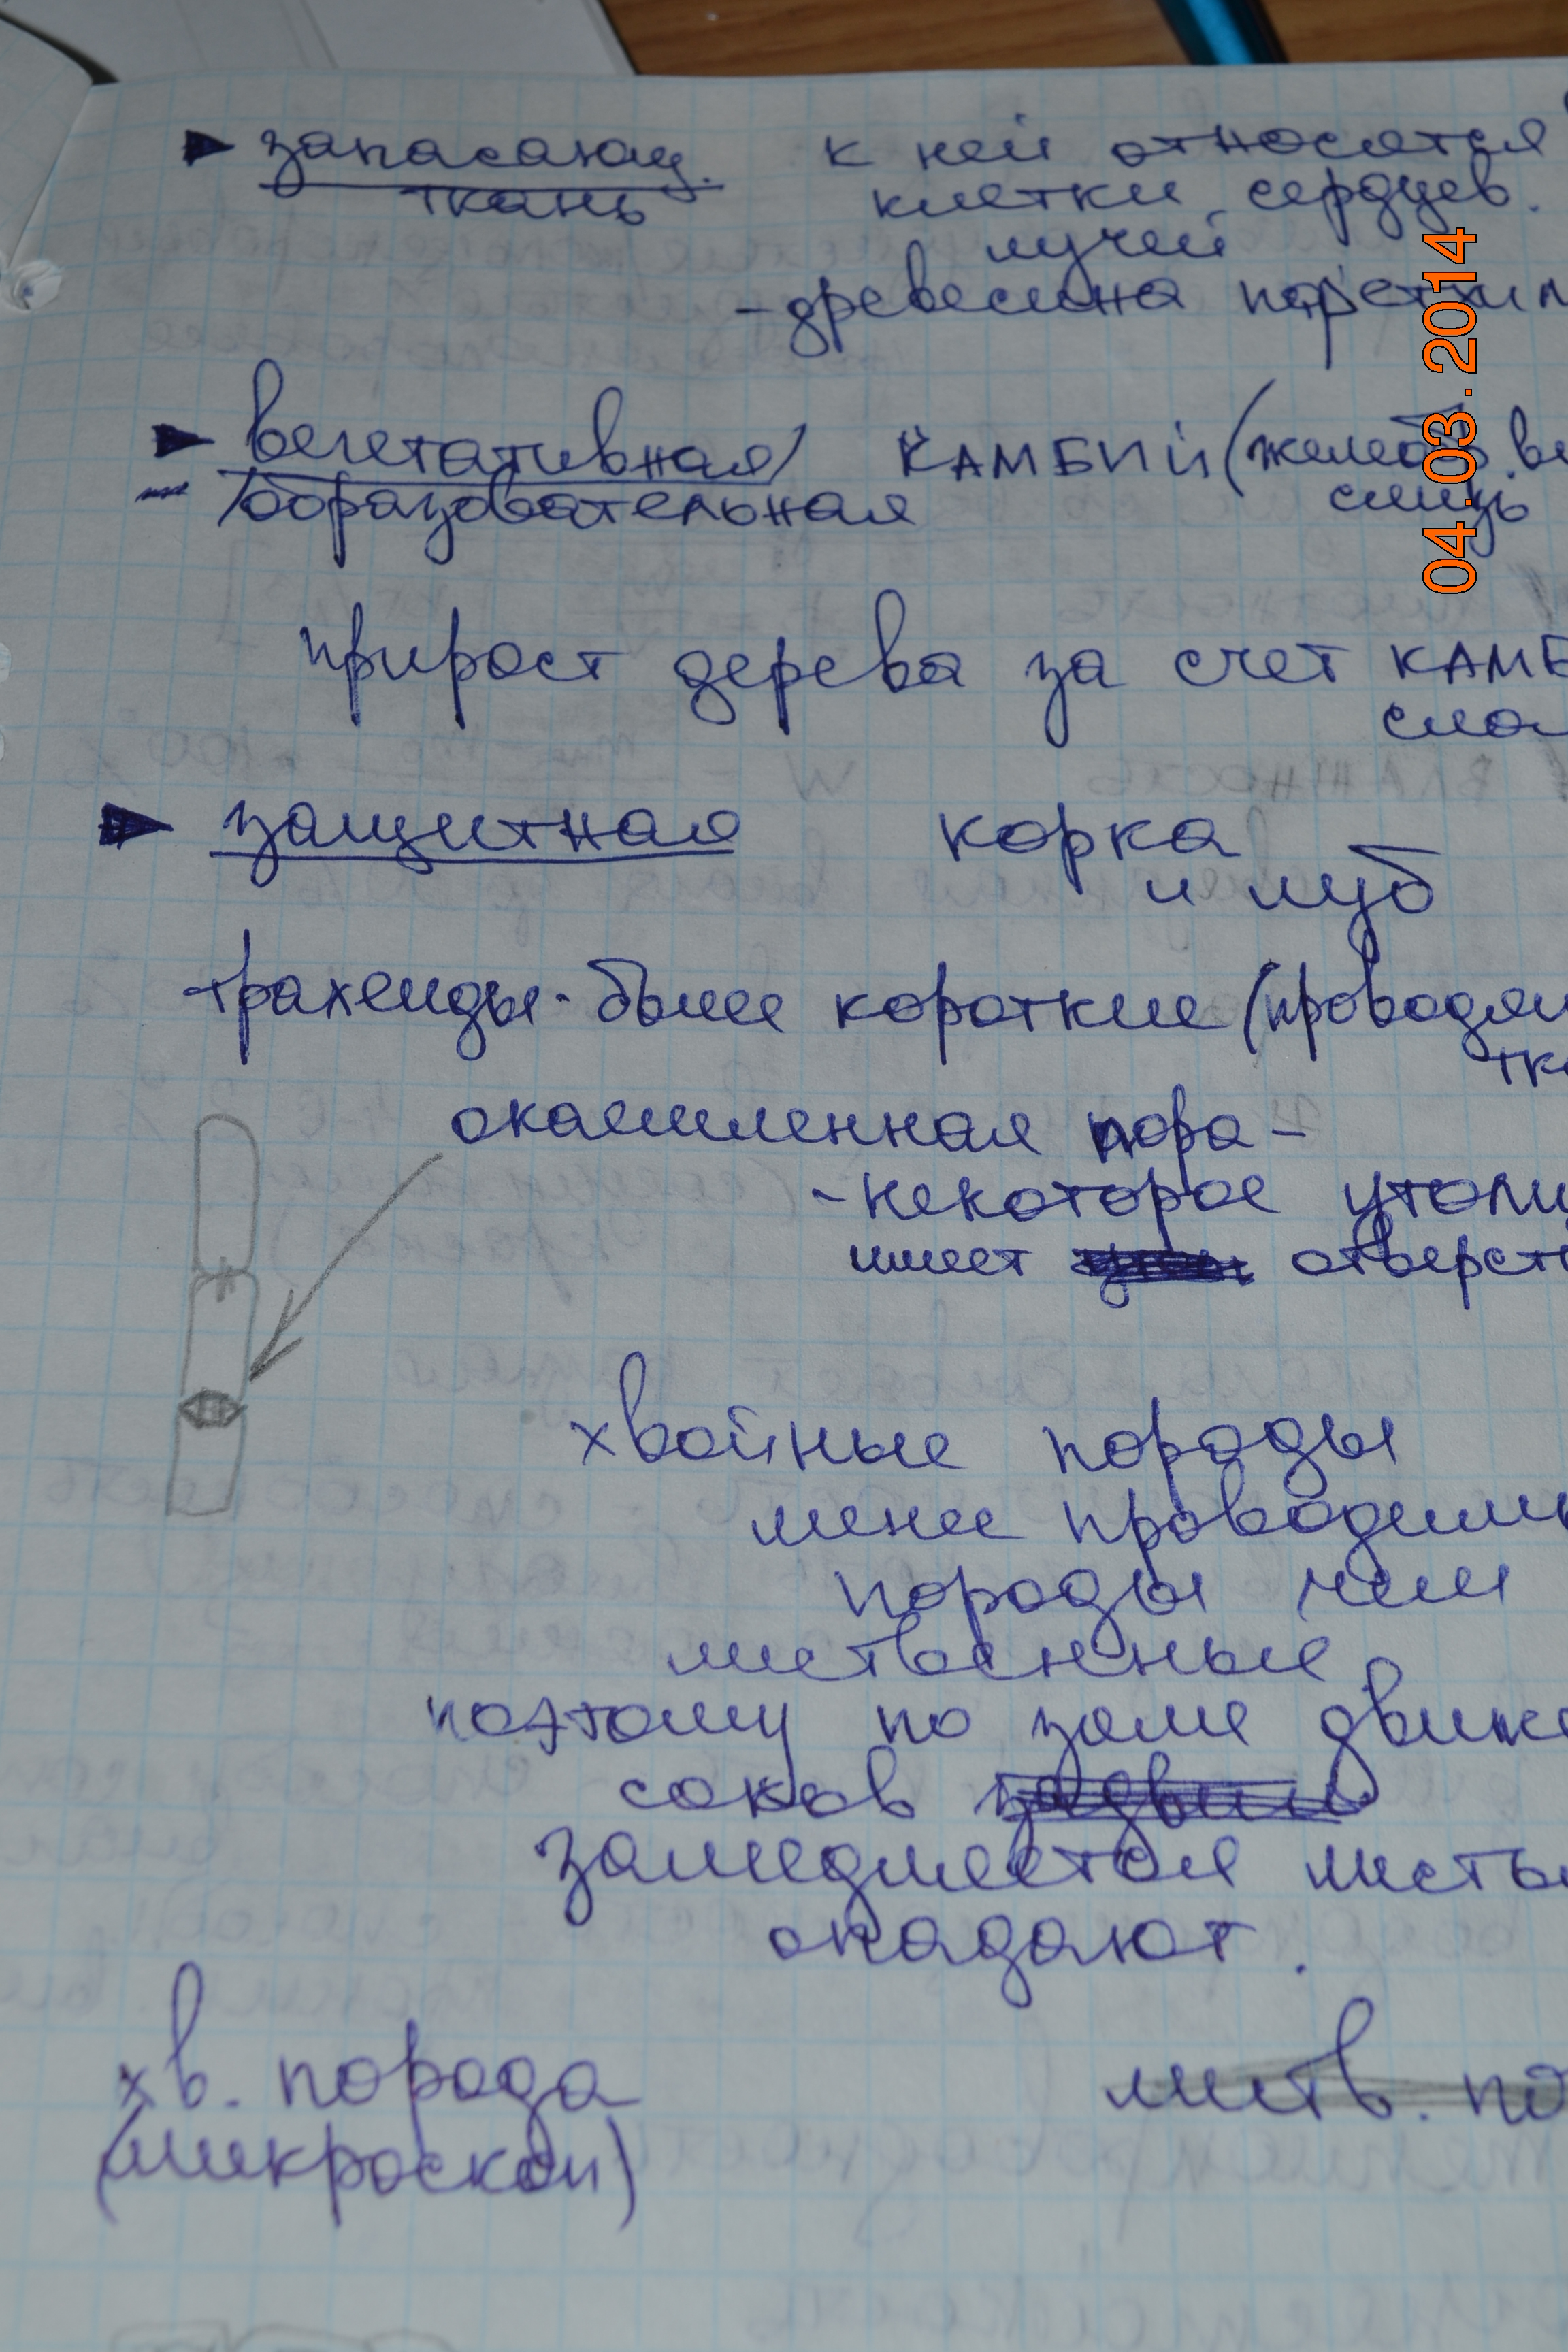 запасающ. к ней относятся
ткань клетки сердцев.
лучей
- древесина паренхим
вегетативная/ КАМБИЙ (желеоб. ве
/образовательная слизь
прирост дерева за счет КАМБ
сло
защитная корка
и луб
трахеиды - более короткие (проводящ
тка
окаймленная пора -
- некоторое утолщ
имеет отверсти
хвойные породы
менее проводим
породы чем
лиственные
поэтому по зиме движе
соков
замедляется листья
опадают.
хв. порода листв. по
(микроскоп)
04.03.2014